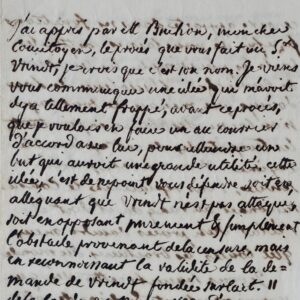 J'ai appris par Mr Buchon, mon cher
Concitoyen, le procès que vous fait un Sr
Vrindt, je crois que c'est son nom. Je viens
vous communiquer une idée qui m'avoit
deja tellement frappé, avant ce procès,
que je voulais en faire un au courrier
d'accord avec lui, pour atteindre un
but qui auroit une grande utilité. cette
idée, c'est de ne point vous défendre soit en
alleguant que Vrindt n'est pas attaqué,
soit en opposant purement & simplement
l'obstacle provenant de la censure, mais
en reconnoissant la validité de la de-
mande de Vrindt fondée sur l'art. 11